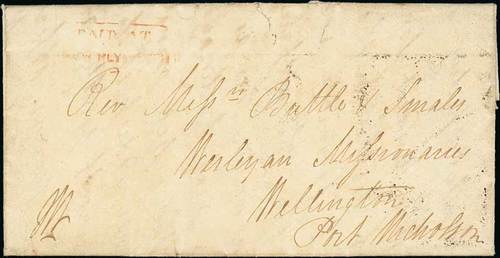 PAID AT
Rev. Messrs Buttle & Smales
Wesleyan Missionaries
Wellington
Port Nicholson